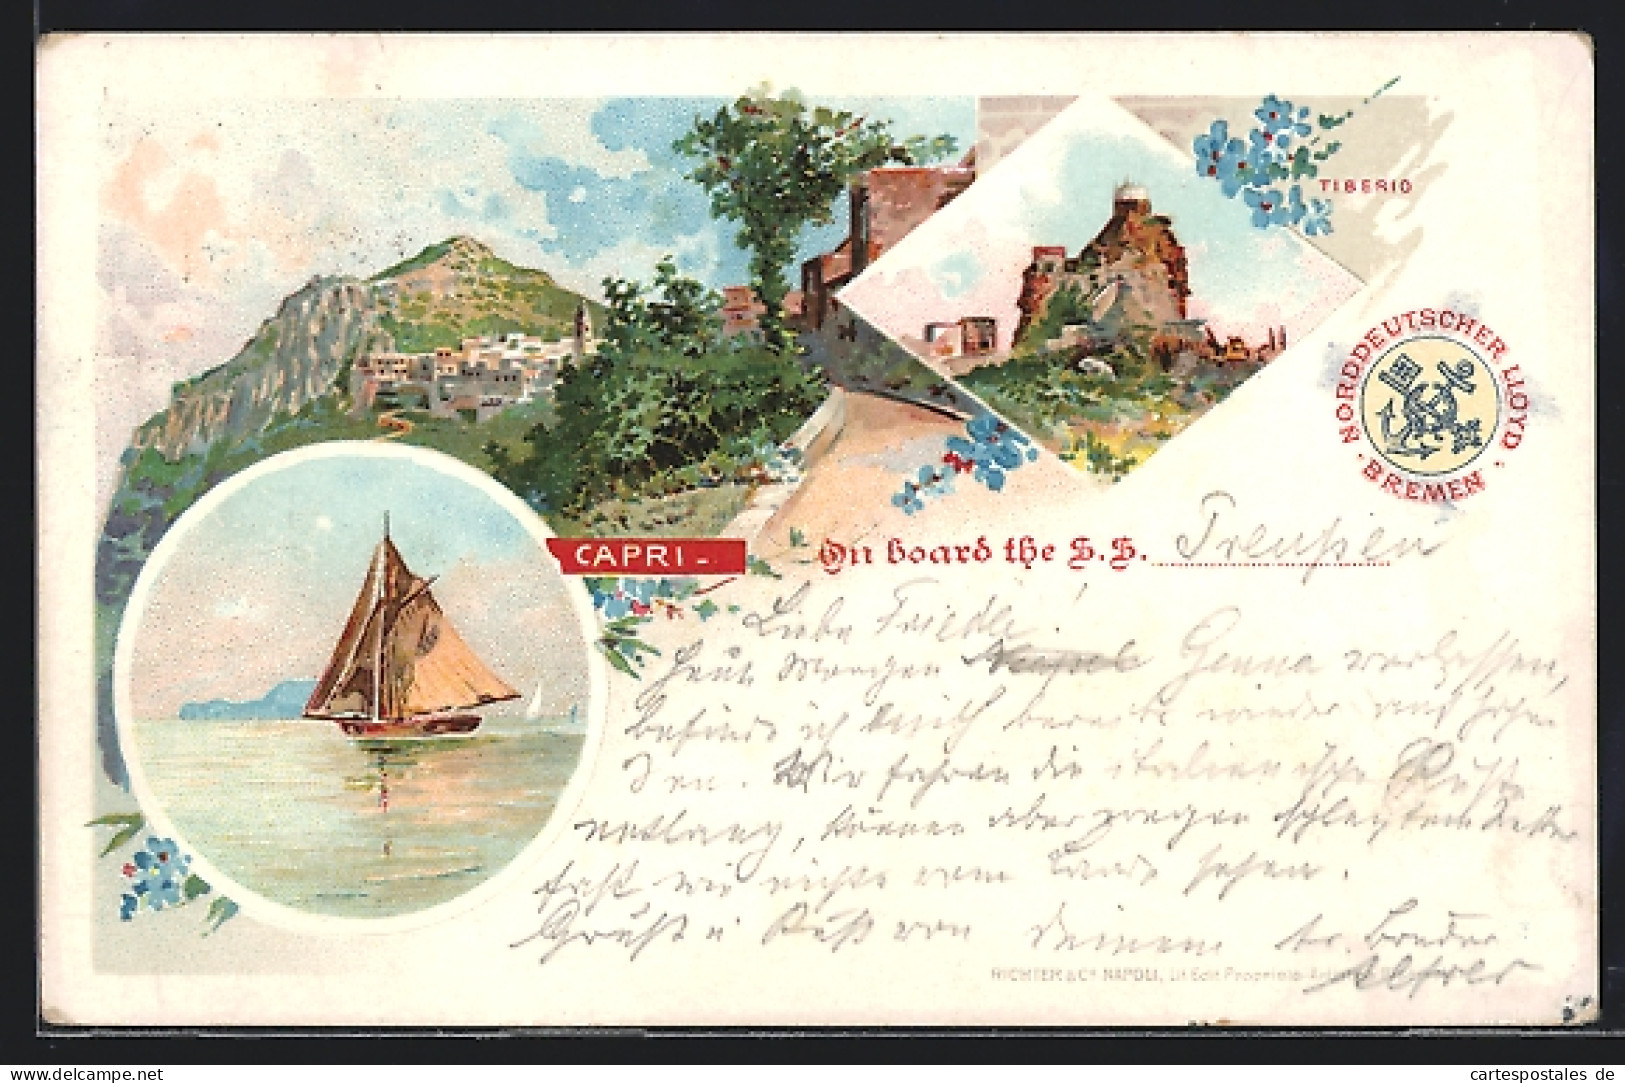 TIBERIO
NORDDEUTSCHER LLOYD
· BREMEN ·
CAPRI -
On board the S.S. Preußen
Liebe Friedel!
Heute Morgen Genua verlassen,
befinde ich mich bereits wieder auf hoher
See. Wir fahren die italienische Küste
entlang, können aber wegen schlechtem Wetter
fast gar nichts vom Land sehen.
Gruß u Kuß von Deinem tr. Bruder
Alfred
RICHTER & Co NAPOLI, Lit Edit Proprieta
cartespostales de